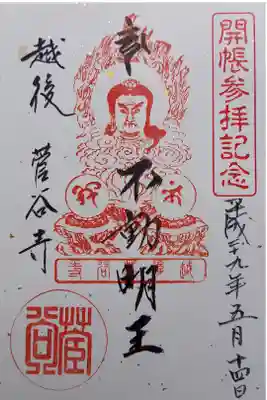 開帳参拝記念
平成二十九年五月十四日
奉
不動明王
越後 菅谷寺
菅谷